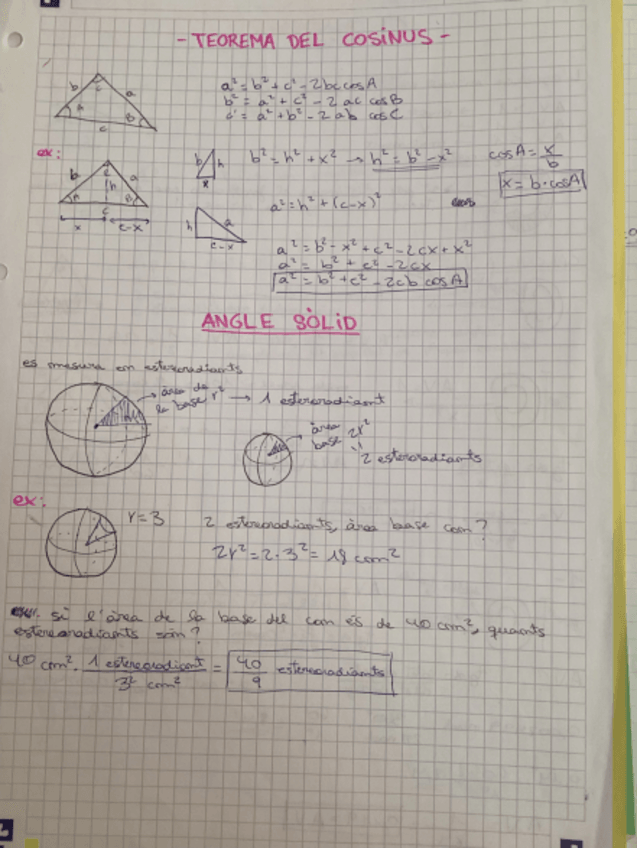 - TEOREMA DEL COSINUS -
a² = b² + c² - 2bc cos A
b² = a² + c² - 2 ac cos B
c² = a² + b² - 2 ab cos C
b c a
A B
c
ex:
b c a
h
A B
c
x c-x
b h
x
b² = h² + x² → h² = b² - x²
cos A = x/b
x = b · cos A
a² = h² + (c-x)²
h a
c-x
a² = b² - x² + c² - 2cx + x²
a² = b² + c² - 2cx
a² = b² + c² - 2cb cos A
ANGLE SÒLID
es mesura en estereoradiants
→ àrea de
la base r² → 1 estereoradiant
→ àrea
base 2r²
2 estereoradiants
ex:
r = 3
2 estereoradiants, àrea base con?
2r² = 2 · 3² = 18 cm²
si l'àrea de la base del con és de 40 cm², quants
estereoradiants són?
40 cm² · 1 estereoradiant / 3² cm² = 40/9 estereoradiants